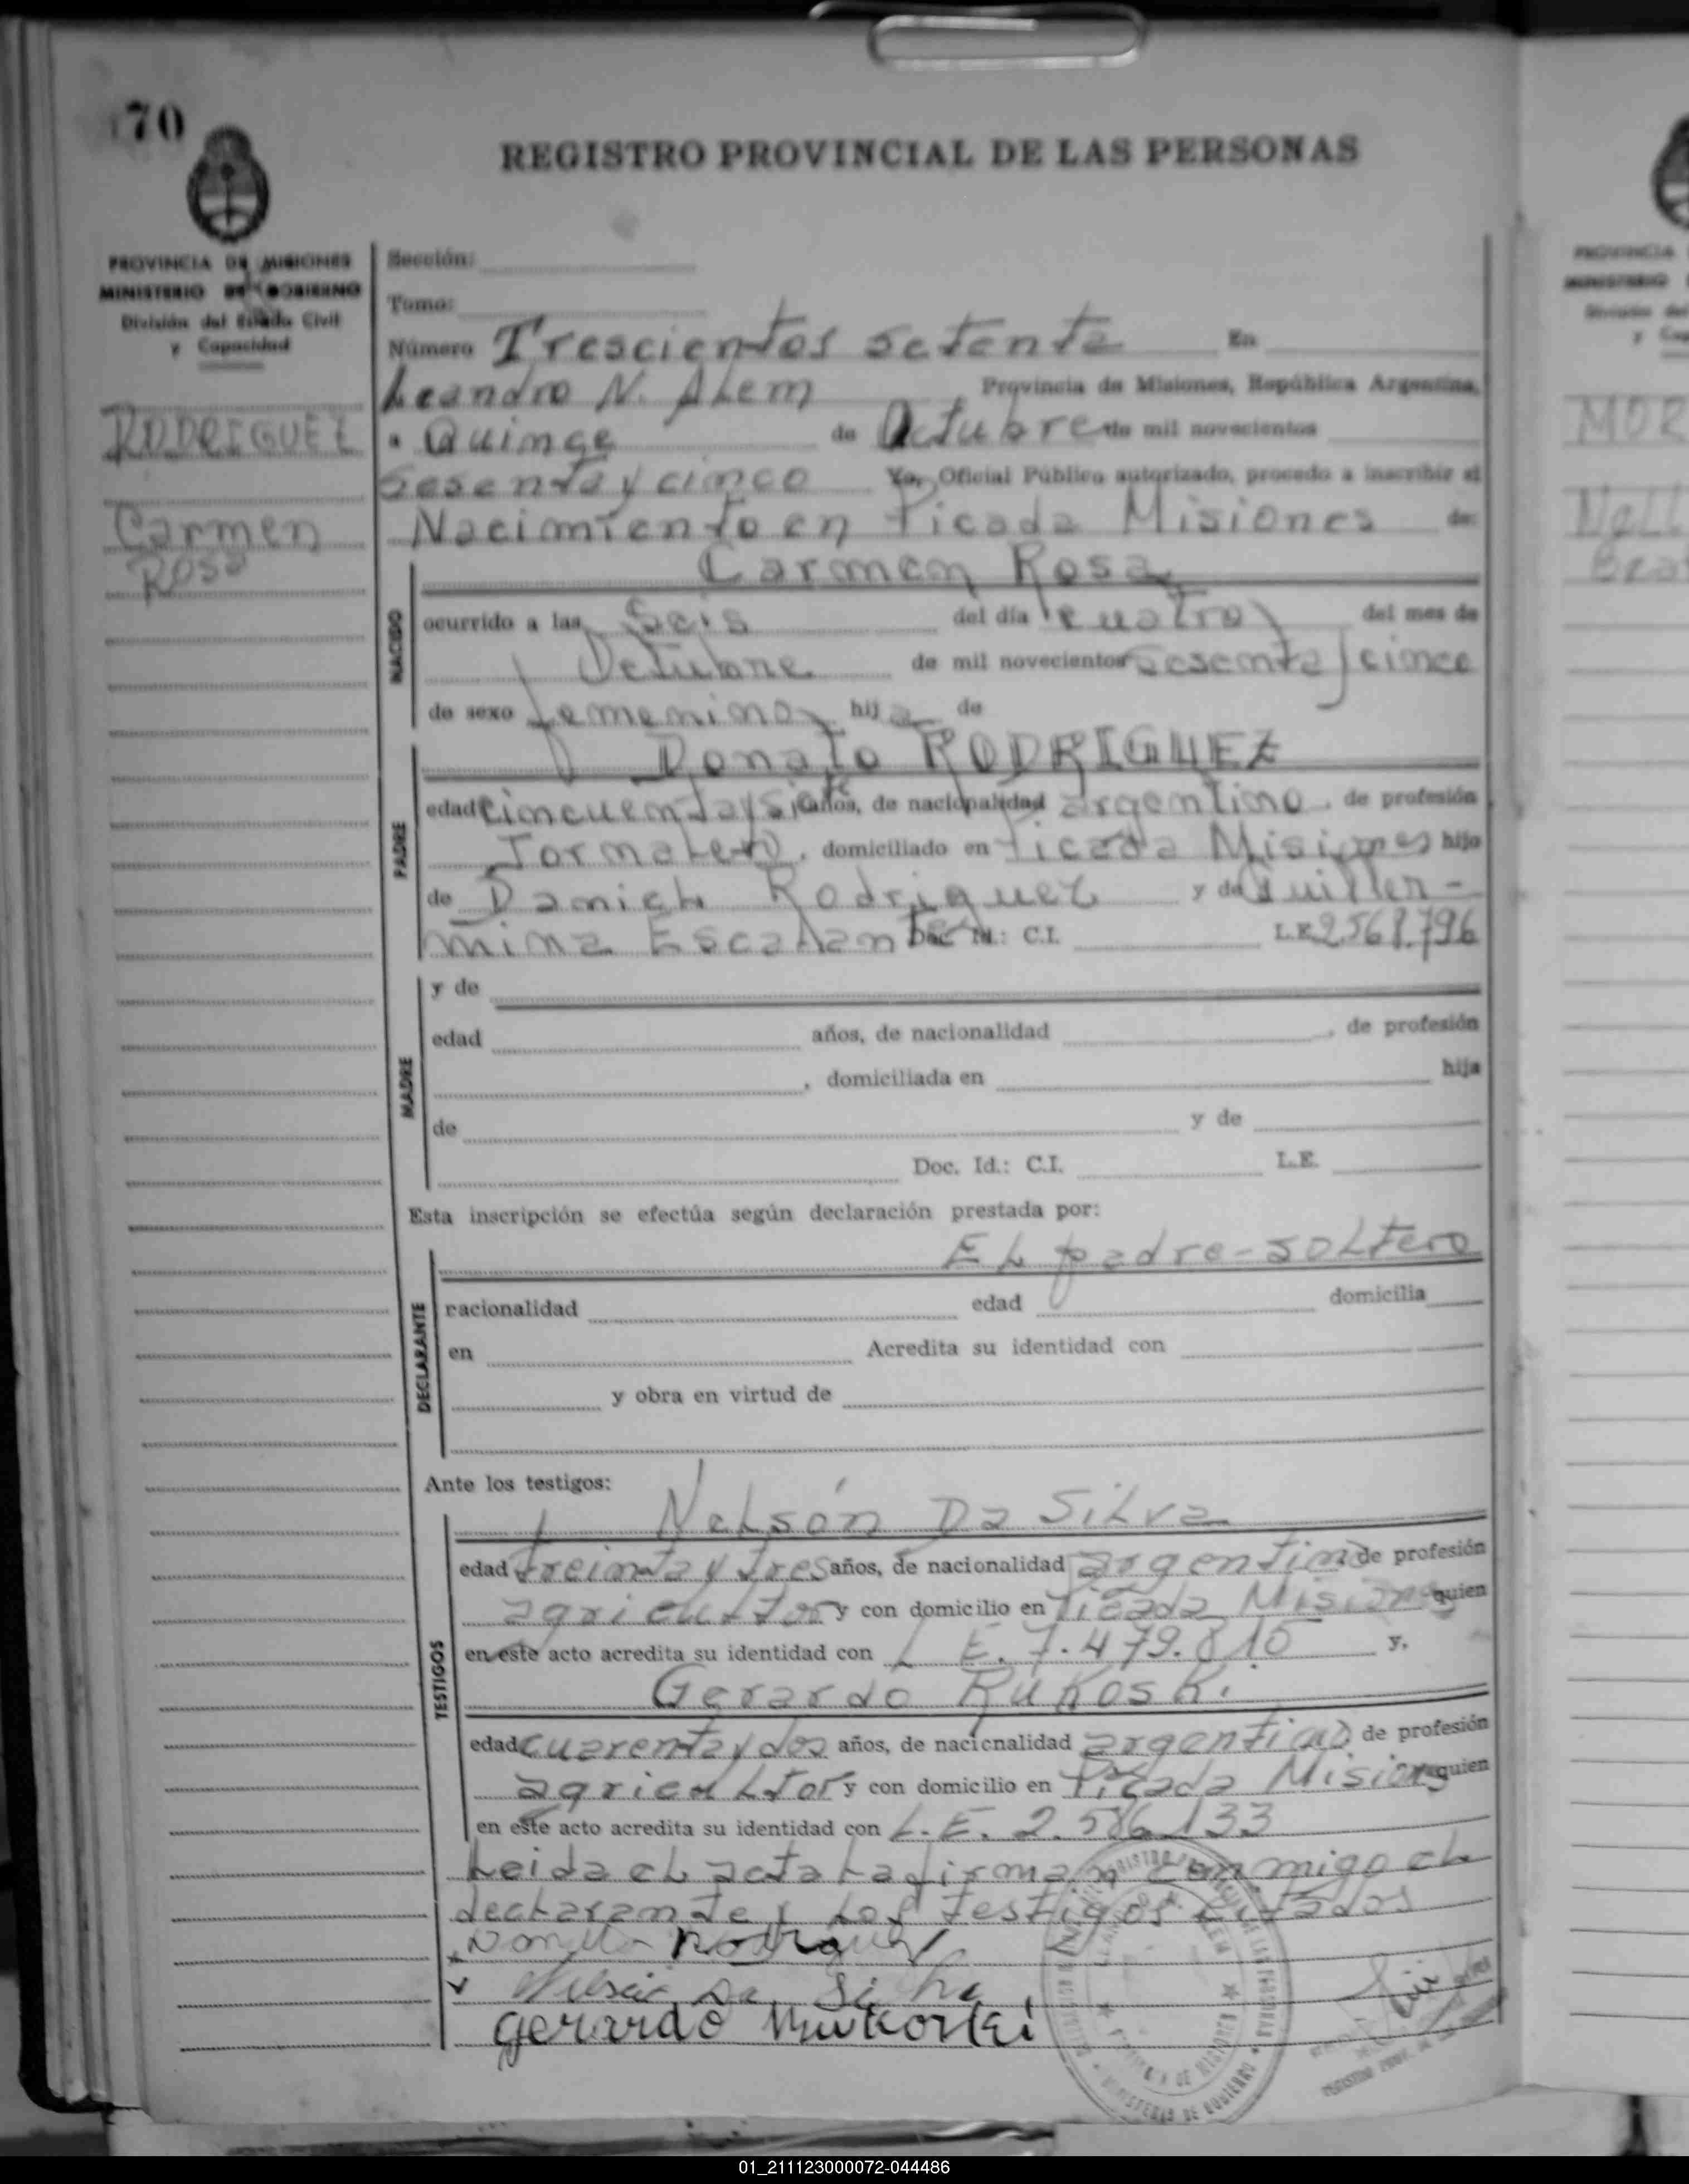 70
REGISTRO PROVINCIAL DE LAS PERSONAS
PROVINCIA DE MISIONES
MINISTERIO DE GOBIERNO
División del Estado Civil
y Capacidad
RODRIGUEZ
Carmen
Rosa
Sección:
Tomo:
Número Trescientos setenta En
Leandro N. Alem Provincia de Misiones, República Argentina,
a Quince de Octubre de mil novecientos
Sesenta y cinco Yo, Oficial Público autorizado, procedo a inscribir el
Nacimiento en Picada Misiones de:
NACIDO
Carmen Rosa
ocurrido a las Seis del día cuatro del mes de
Octubre de mil novecientos sesenta y cinco
de sexo femenino hija de
PADRE
Donato RODRIGUEZ
edad cincuenta y siete años, de nacionalidad argentino, de profesión
Jornalero, domiciliado en Picada Misiones hijo
de Daniel Rodriguez y de Guiller-
mina Escalante Doc. Id.: C.I. L.E. 2568.796
MADRE
y de
edad años, de nacionalidad , de profesión
, domiciliada en hija
de y de
Doc. Id.: C.I. L.E.
Esta inscripción se efectúa según declaración prestada por:
DECLARANTE
El padre-soltero
nacionalidad edad domicilia
en Acredita su identidad con
y obra en virtud de
Ante los testigos:
TESTIGOS
Nelsón Da Silva
edad treinta y tres años, de nacionalidad argentino de profesión
agricultor y con domicilio en Picada Misiones quien
en este acto acredita su identidad con L.E. 7.479.815 y,
Gerardo Rukoski
edad cuarenta y dos años, de nacionalidad argentino de profesión
agricultor y con domicilio en Picada Misiones quien
en este acto acredita su identidad con L.E. 2.586.133
Leida el acta la firman conmigo el
declarante y los testigos citados
Rodriguez
Da Silva
gerardo
MOR
Nell
Beat
01_211123000072-044486